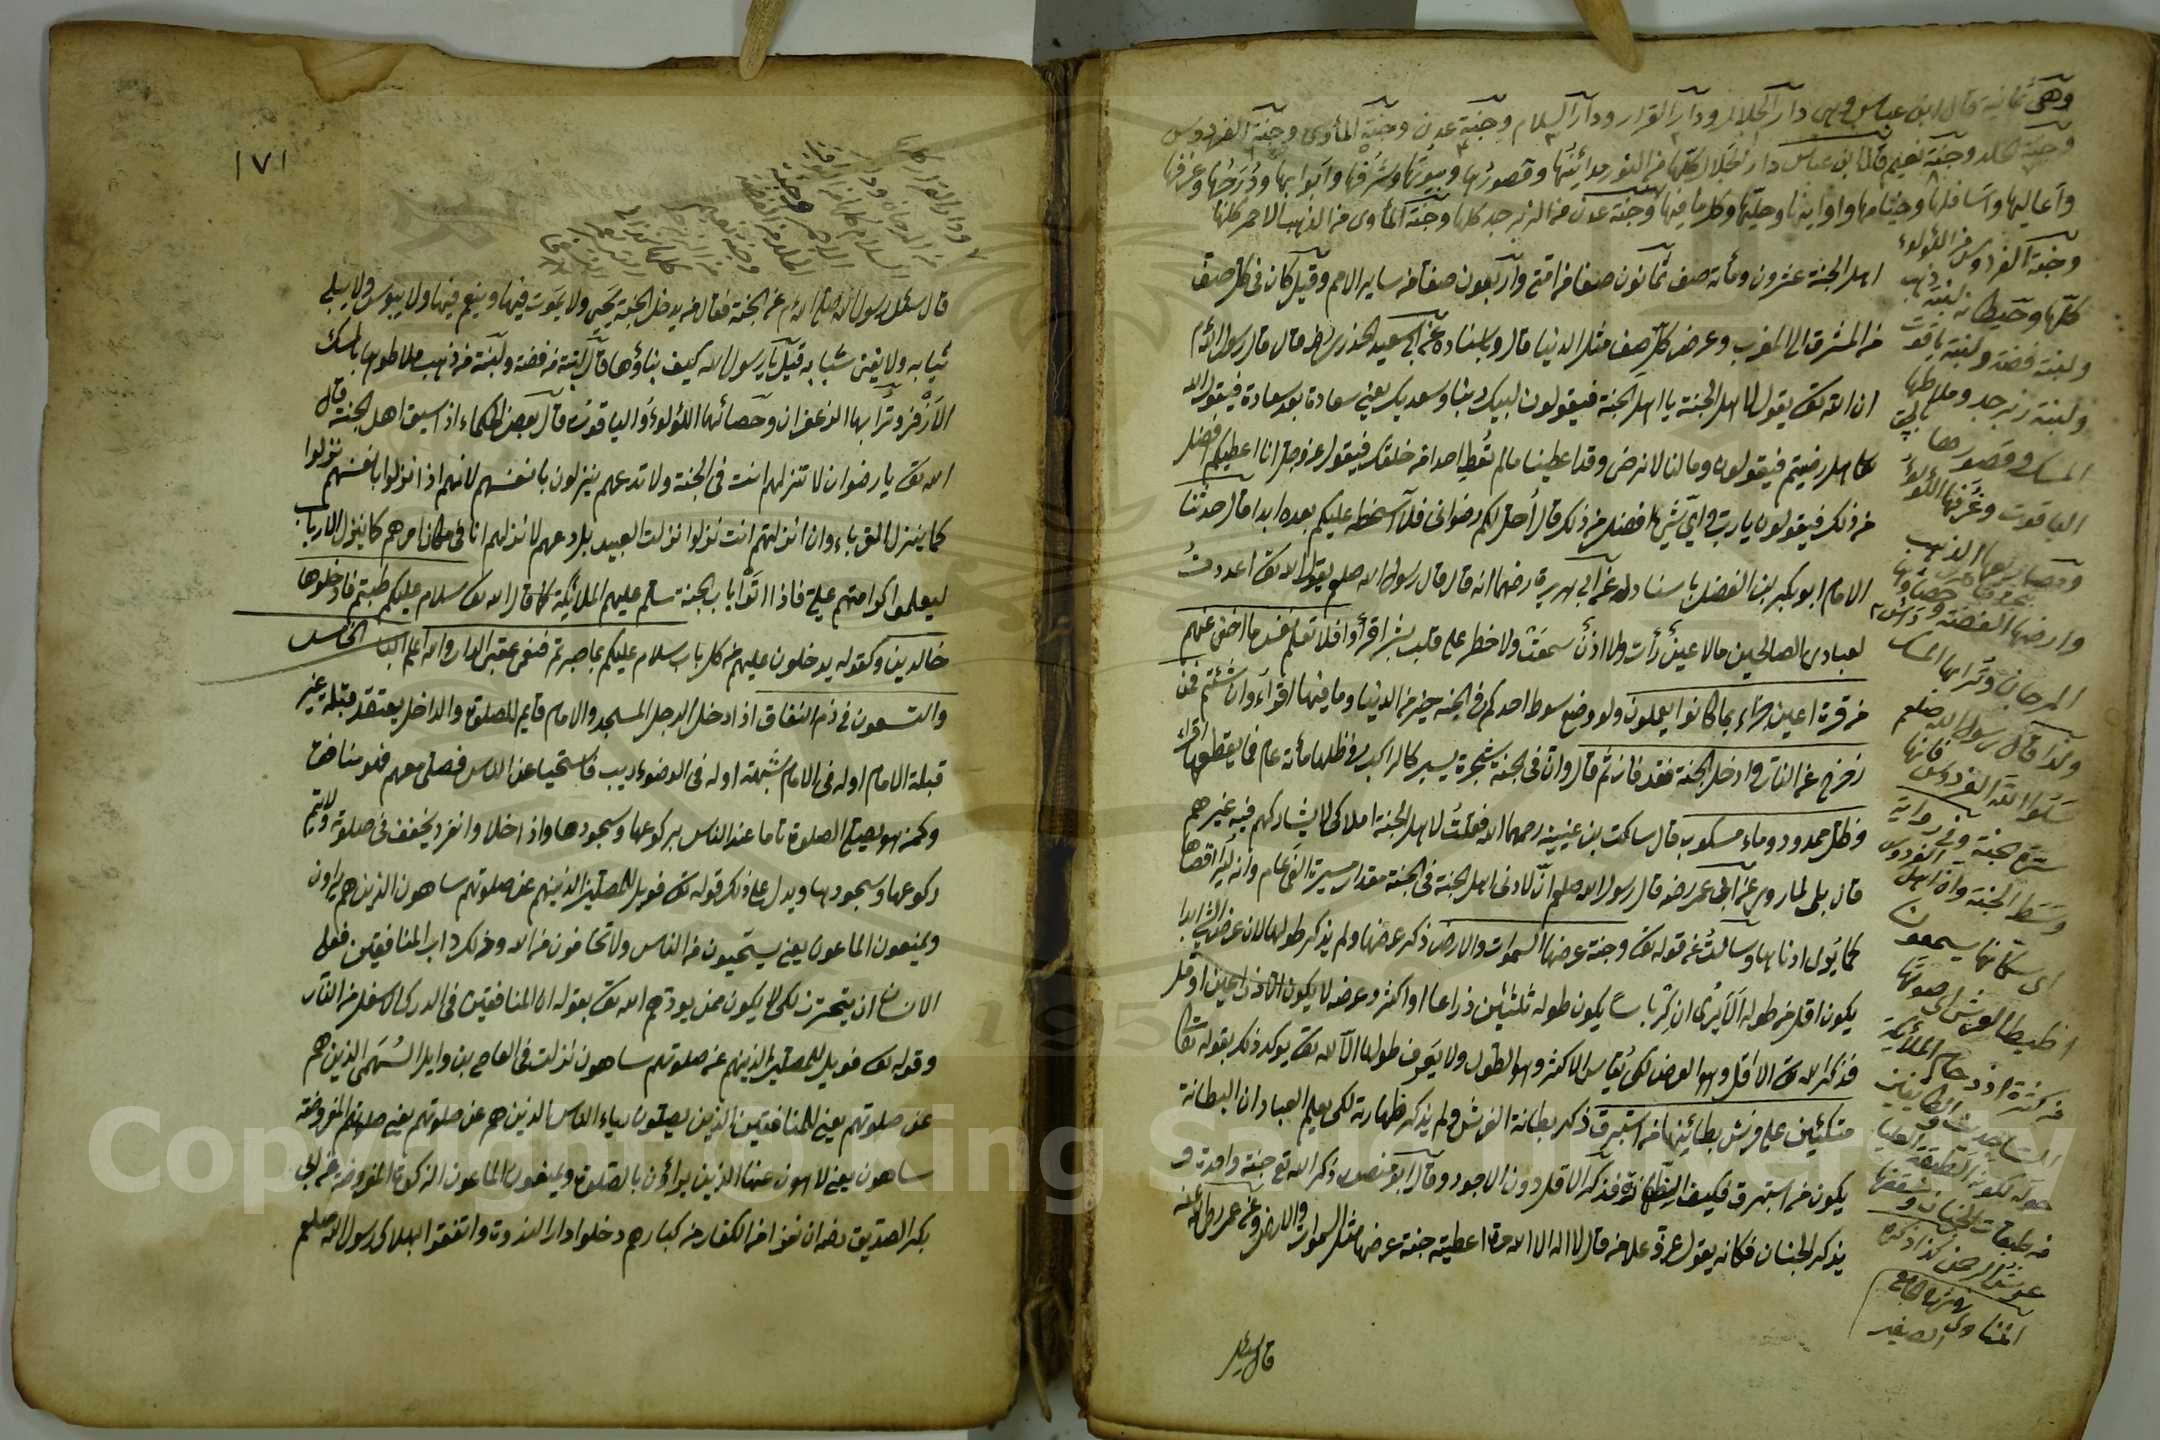 وهي ثمانية قال ابن عباس وهي دار الجلال ودار القرار ودار السلام وجنة عدن وجنة المأوى وجنة الفردوس
وجنة الخلد وجنة نعيم قال ابن عباس دار الجلال كلها من النور مدائنها وقصورها وبيوتها وشرفها وابوابها ودرجها وغرفها
واعاليها واسافلها وخيامها واوانيها وحليتها وكل ما فيها وجنة عدن من الزبرجد كلها وجنة المأوى من الذهب الاحمر كلها
وجنة الفردوس من اللؤلؤ
كلها وحيطانها لبنة ذهب
ولبنة فضة ولبنة ياقوت
ولبنة زبرجد وملاطها
المسك وقصورها
الياقوت وغرفها اللؤلؤ
ومصاريعها الذهب
وارضها الفضة
المرجان وترابها المسك
ولذا قال رسول الله صلعم
سلوا الله الفردوس فانها
سرة الجنة وفي رواية
وسط الجنة وان اهل الفردوس
اي سكانها يسمعون
اطيط العرش اي صوته
من كثرة ازدحام الملائكة
الساجدين والطائفين
حوله لكونه الطبقة العليا
من طبقات الجنان وسقفها
عرش الرحمن كذا ذكره
المناوى في شرح الجامع
الصغير
اهل الجنة عشرون ومائة صف ثمانون صفا من امتي واربعون صفا من ساير الامم وقيل كان في كل صف
من المشرق الى المغرب وعرض كل صف مثل الدنيا قال وباسناده عن ابي سعيد الخدرى رض قال قال رسول الله م
ان الله تعالى يقول لاهل الجنة يا اهل الجنة فيقولون لبيك ربنا وسعديك يعني سعادة بعد سعادة فيقول الله
هل رضيتم فيقولون وما لنا لا نرضى وقد اعطيتنا ما لم تعط احدا من خلقك فيقول عز وجل انا اعطيكم افضل
من ذلك فيقولون يا رب واي شئ افضل من ذلك قال أحل لكم رضوانى فلا اسخط عليكم بعده ابدا قال حدثنا
الامام ابو بكر بن الفضل باسناد له عن ابي هريرة رضهما انه قال قال رسول الله صلعم يقول الله تعالى اعددت
لعبادي الصالحين ما لا عين رأت ولا اذن سمعت ولا خطر على قلب بشر اقرأوا فلا تعلم نفس ما اخفى لهم
من قرة اعين جزاء بما كانوا يعملون ولو وضع سوط احدكم في الجنة خير من الدنيا وما فيها اقرأوا ان شئتم فمن
زحزح عن النار وادخل الجنة فقد فاز ثم قال وان في الجنة شجرة يسير الراكب في ظلها مائة عام فما يقطعها اقرأوا
وظل ممدود وماء مسكوب قال سألت بن عيينة رحمهما الله فقلت لاهل الجنة املاك لا يشاركهم فيه غيرهم
قال بلى لما روى عن ابن عمر رض قال رسول الله صلعم ان لادنى اهل الجنة في الجنة مقدار مسيرة الفى عام وانه ليرا اقصاها
كما يرى ادناها وسألت عن قوله تعالى وجنة عرضها السموات والارض ذكر عرضها ولم يذكر طولها لان عرض الشئ ابدا
يكون اقل من طوله الا يرى ان كرباسا يكون طوله ثلثين ذراعا او اكثر وعرضه لا يكون الا ذراعين او اقل
فذكر الله تعالى الاقل وهو العرض لكى يقاس الاكثر وهو الطول ولا يعرف طولها الا الله تعالى يؤكد ذلك بقوله تعالى
متكئين على فرش بطائنها من استبرق ذكر بطانة الفرش ولم يذكر ظهارته لكى يعلم العباد ان البطانة
يكون من استبرق فكيف الظهارة فذكر الاقل دون الاجود وقال ابو منصور ذكر الله تع جنة واحدة و
يذكر الجنان فكانه يقول عز وعلا من قال لا اله الا الله مرة اعطيته جنة عرضها مثل السموات والارض وعن عمر رضى الله عنه
قال سئل
١٧١
ودار القرار كلها
من المرجان ودار
السلام كلها من الياقوت
الاحمر وجنة
الخلد من الفضة
وجنة النعيم
من الزبرجد
كلها
قال سئل رسول الله صلى الله م عن الجنة فقال من يدخل الجنة يحيى ولا يموت فيها وينعم فيها ولا يبوس ولا يبلى
ثيابه ولا يفنى شبابه قيل يا رسول الله كيف بناؤها قال لبنة من فضة ولبنة من ذهب ملاطها بالمسك
الاذفر وترابها الزعفران وحصائها اللؤلؤ والياقوت قال بعض الحكماء اذا سيق اهل الجنة قال
الله تعالى يا رضوان لا تنزلهم انت في الجنة ولا تدعهم ينزلون بانفسهم لانهم اذا نزلوا بانفسهم نزلوا
كما ينزل الغرباء وان انزلتهم انت نزلوا نزلت العبيد بل دعهم لانزلهم انا في مكانا مرهم كما ينزل الارباب
ليعلموا كرامتهم علي فاذا اتوا باب الجنة سلم عليهم الملائكة كما قال الله تعالى سلام عليكم طبتم فادخلوها
خالدين وكقوله يدخلون عليهم من كل باب سلام عليكم بما صبرتم فنعم عقبى الدار والله اعلم الباب الخامس
والتسعون في ذم النفاق اذا دخل الرجل المسجد والامام قايم للصلوة والداخل يعتقد قبلة غير
قبلة الامام او له في الامام شبهة او له في الوضوء ريب فاستحيا عن الناس فصلى معهم فهو منافق
وكمن هو يصلي الصلوة تاما عند الناس بركوعها وسجودها واذا خلا وانفرد يخفف في صلوته ولا يتم
ركوعها وسجودها ويدل على ذلك قوله تعالى فويل للمصلين الذين هم عن صلوتهم ساهون الذين هم يراؤن
ويمنعون الماعون يعني يستحيون من الناس ولا تخافون من الله وذلك داب المنافقين فعلى
الانسان ان يتحرز لكي لا يكون ممن يودهم الله تعالى بقوله ان المنافقين في الدرك الاسفل من النار
وقوله تعالى فويل للمصلين الذين هم عن صلوتهم ساهون نزلت في العاص بن وايل السهمى الذين هم
عن صلوتهم يعني المنافقين الذين يصلون رياء الناس الذين هم عن صلوتهم يعني صلوتهم المفروضة
ساهون يعني لاهون عنها الذين يراؤن بالصلوة ويمنعون الماعون الزكوة المفروضة عن ابي
بكر الصديق رضه ان نفرا من الكفار من كبارهم دخلوا دار الندوة واتفقوا لهلاك رسول الله صلعم
Copyright © King Saud University
195